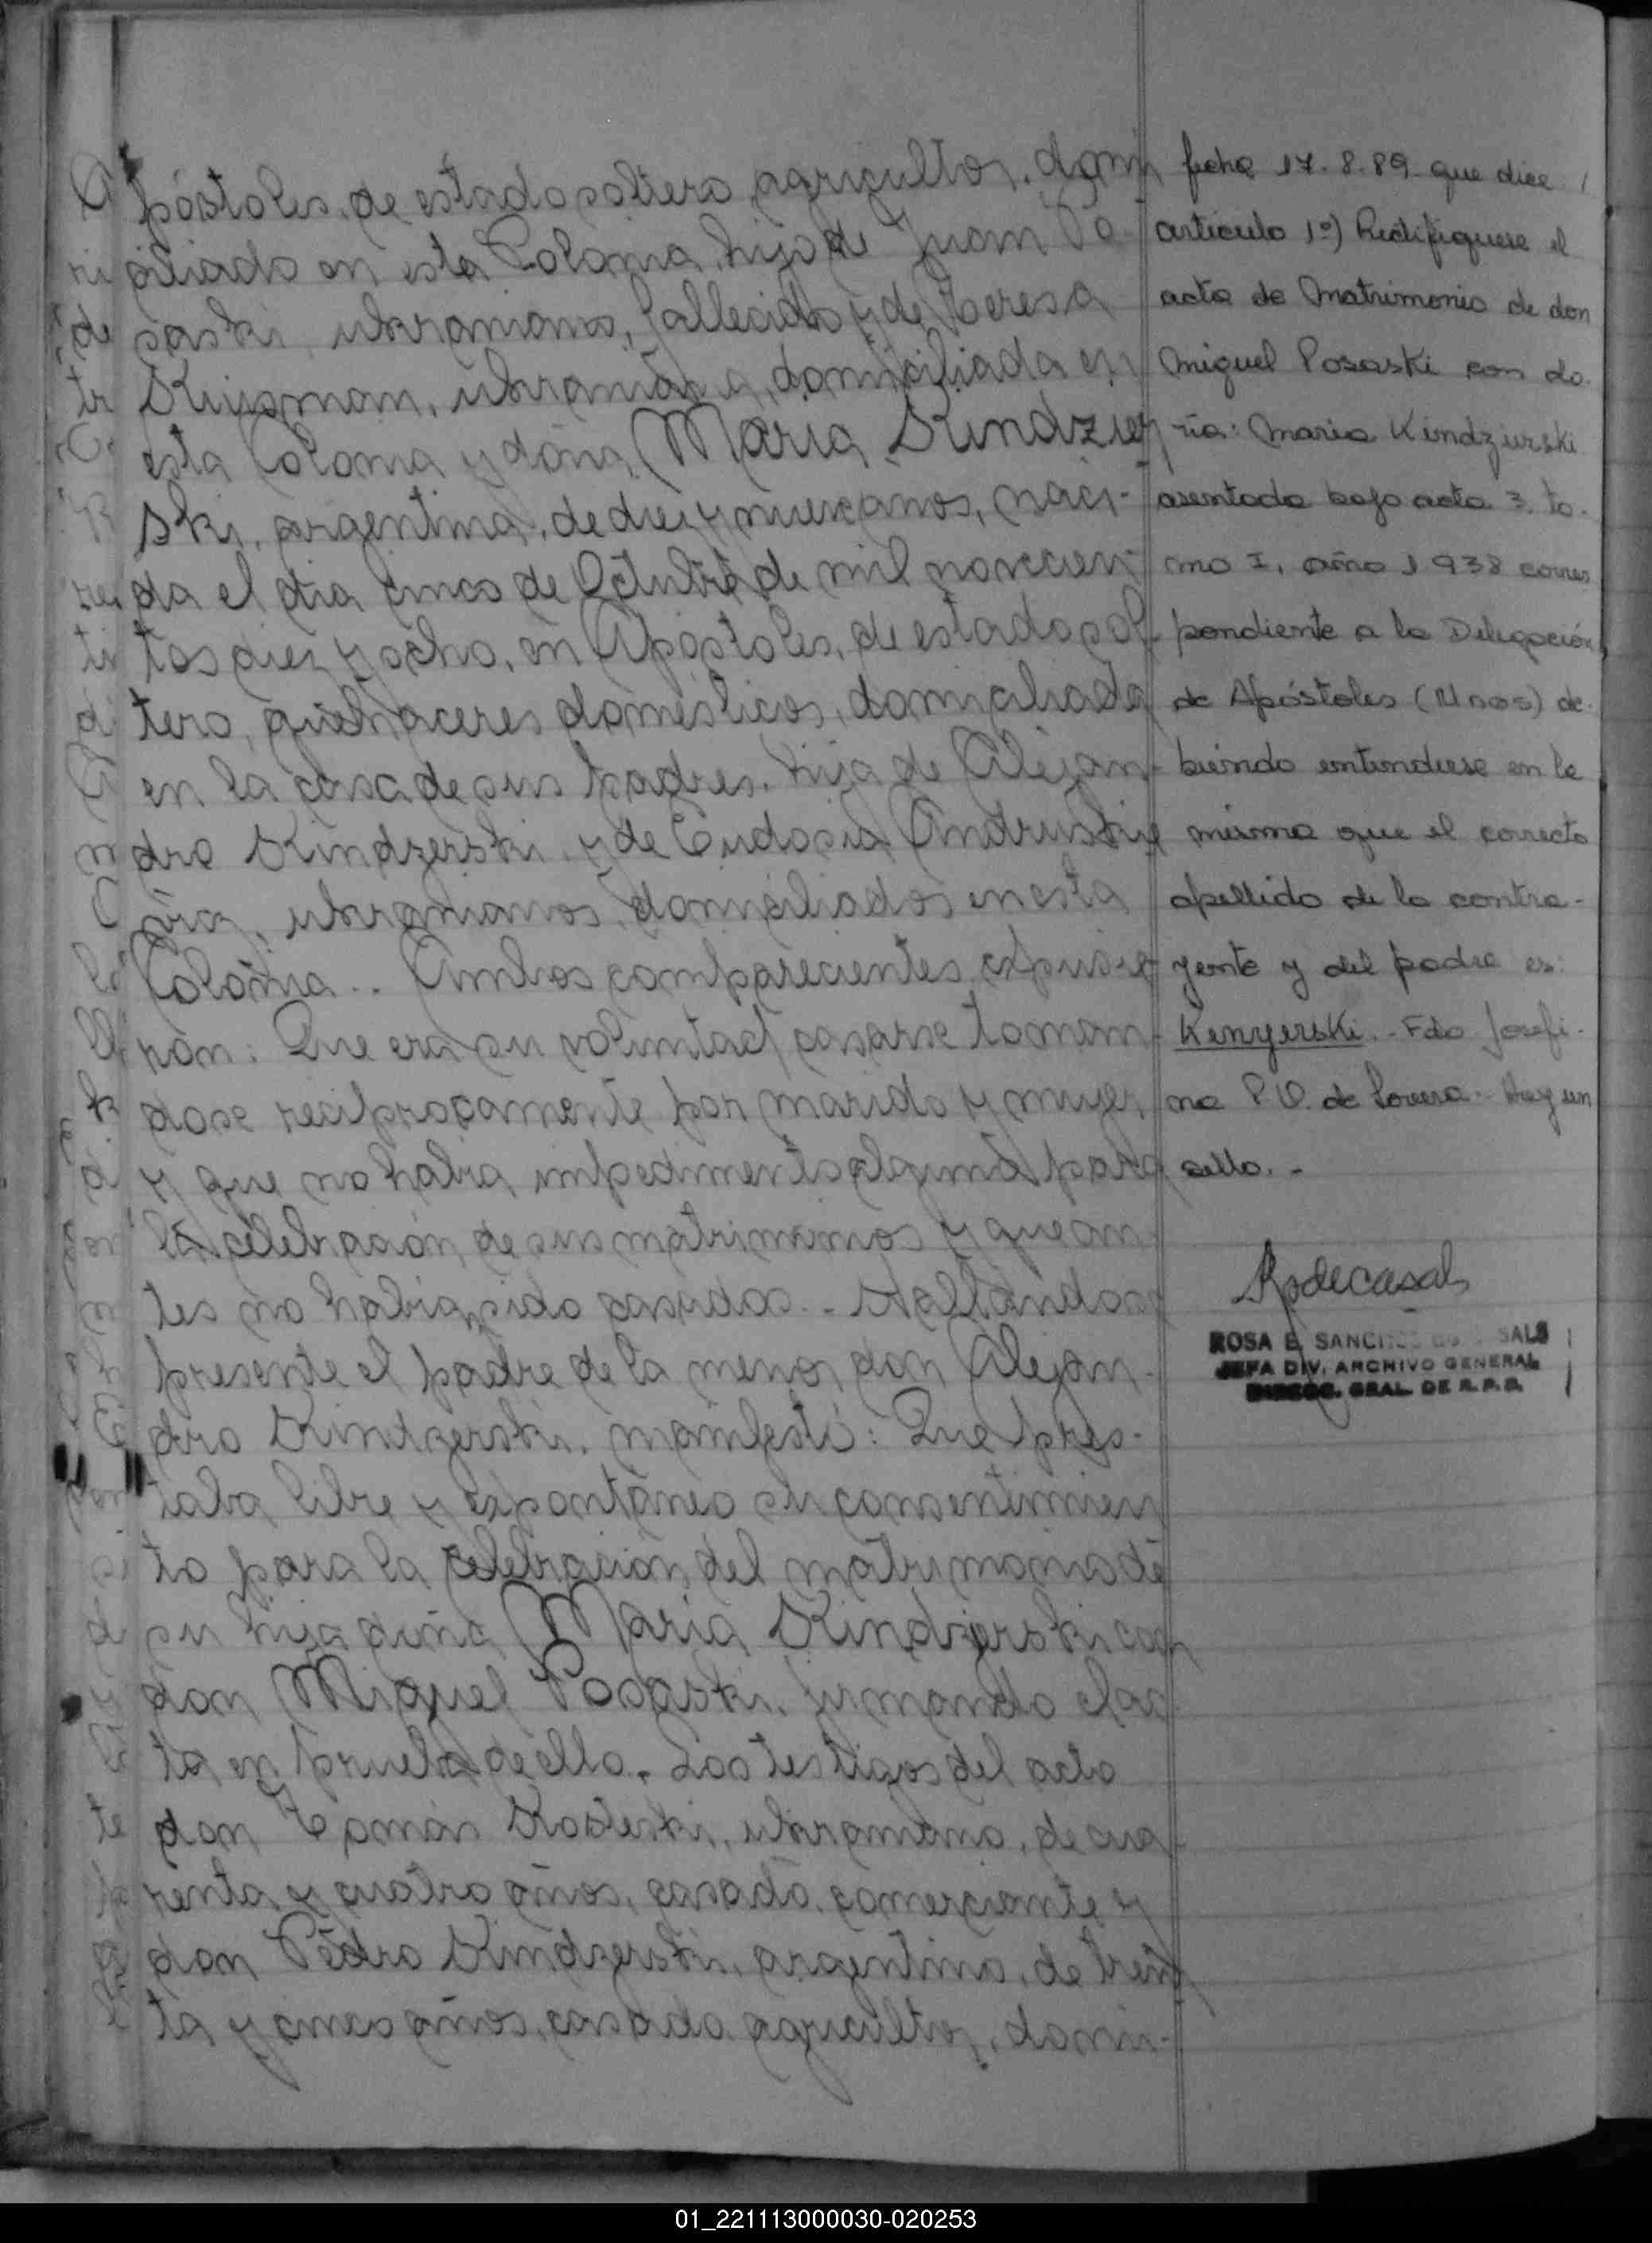 póstoles, de estado soltero, agricultor, domi
ciliado en esta Colonia, hijo de Juan Po-
saski, ukraniano, fallecido y de Teresa
ukraniana, domiciliada en
esta Colonia y doña María Kindzier
ski, argentina, de diez y nueve años, naci-
da el día cinco de Octubre de mil novecien-
tos diez y ocho, en Apóstoles, de estado sol-
tera, quehaceres domésticos, domiciliada
en la casa de sus padres, hija de Alejan-
dro Kindzerski y de Eudosia
ukranianos, domiciliados en esta
Colonia.. Ambos comparecientes expusie-
ron: Que era su voluntad casarse toman-
dose reciprocamente por marido y mujer
y que no habia impedimento alguno para
la celebración de su matrimonio y que an-
tes no habian sido casados.. Hallandose
presente el padre de la menor don Alejan-
dro Kindzerski, manifestó: Que pres-
taba libre y espontáneo su consentimien
to para la celebración del matrimonio de
su hija doña María Kindzierski con
don Miguel Posaski, firmando el ac
ta en prueba de ello. Los testigos del acto
don ukraniano, de cua-
renta y cuatro años, casado, comerciante y
don Pedro Kindzerski, argentino, de trein
ta y cinco años, casado, agricultor, domi-
fecha 17.8.89 que dice /
artículo 1º) Rectifiquese el
acta de Matrimonio de don
Miguel Posaski con do-
ña: Maria Kindzierski
asentada bajo acta 3. to-
mo I, año 1938 corres
pondiente a la Delegación
de Apóstoles (Mnes) de-
biendo entenderse en la
misma que el correcto
apellido de la contra-
yente y del padre es:
Kenyerski. - Fdo Josefi-
na P.V. de Lovera. Hay un
sello. -
Rsdecasals
ROSA E. SANCHEZ SALS
JEFA DIV. ARCHIVO GENERAL
DIRECC. GRAL. DE R.P.P.
01_221113000030-020253